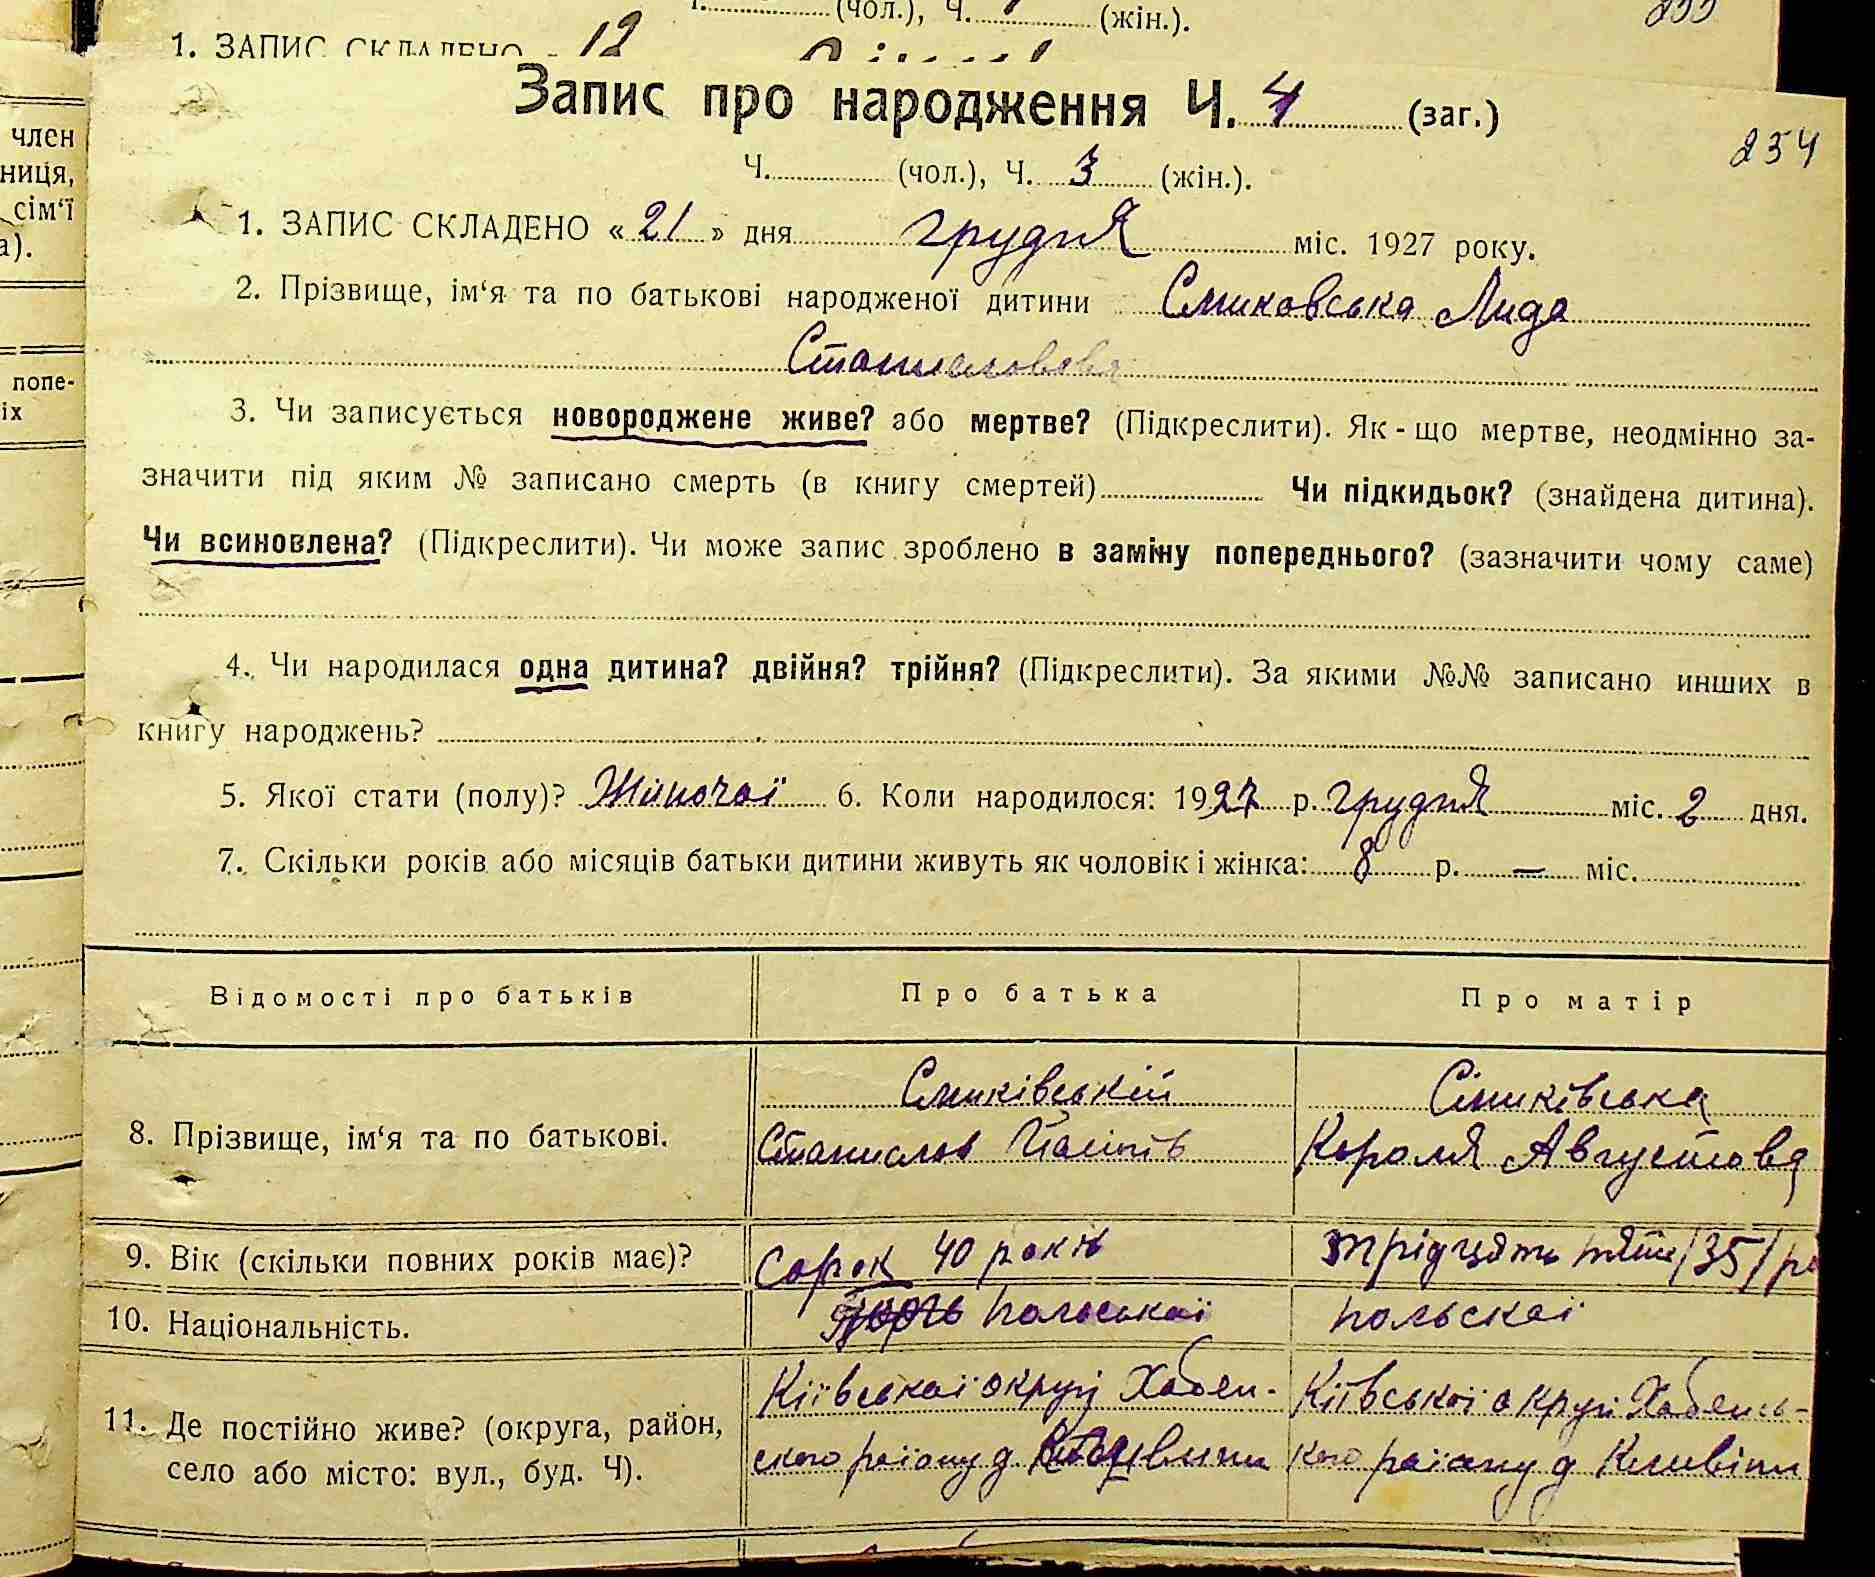 (чол.), Ч. (жін.).
1. ЗАПИС СКЛАДЕНО 12
Запис про народження Ч. 4 (заг.)
254
Ч. (чол.), Ч. 3 (жін.).
1. ЗАПИС СКЛАДЕНО « 21 » дня грудня міс. 1927 року.
2. Прізвище, ім‘я та по батькові народженої дитини Сниковська Лида
Станиславовна
3. Чи записується новороджене живе? або мертве? (Підкреслити). Як-що мертве, неодмінно за-
значити під яким № записано смерть (в книгу смертей) Чи підкидьок? (знайдена дитина).
Чи всиновлена? (Підкреслити). Чи може запис зроблено в заміну попереднього? (зазначити чому саме)
4. Чи народилася одна дитина? двійня? трійня? (Підкреслити). За якими №№ записано инших в
книгу народжень?
5. Якої стати (полу)? Жіночаї 6. Коли народилося: 1927 р. грудня міс. 2 дня.
7. Скільки років або місяців батьки дитини живуть як чоловік і жінка: 8 р. — міс.
Відомості про батьків Про батька Про матір
8. Прізвище, ім‘я та по батькові. Сниківській Сніиківська
Станислов Кароля Августова
9. Вік (скільки повних років має)? Сорок 40 років трідцять пять /35/ рс
10. Національність. польськаї польскаї
11. Де постійно живе? (округа, район, село або місто: вул., буд. Ч). Кіївськаї округі Хабен- Кіївськаї округі Хабенсь-
ского раіону д кого раіону д
член
ниця,
сім‘ї
а).
попе-
іх